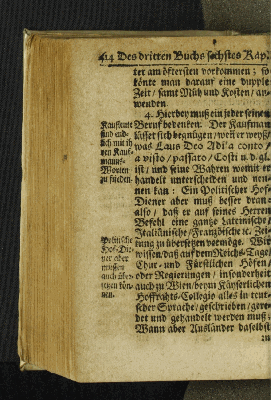 414 Des dritten Buchs sechstes Kap.
ter am öftersten vorkommen; so
könte man darauf eine dupple
Zeit / samt Müh und Kosten / an-
wenden.
4. Hierbey muß ein jeder seinen
Beruf bedencken. Der Kaufman
lässet sich begnügen / wen er weyß /
was Laus Deo Adi' a conto /
a visto / passato / Costi u. d. gl.
ist / und seine Wahren womit er
handelt unterscheiden und nen-
nen kan: Ein Politischer Hof-
Diener aber muß besser dran-
also / daß er auf seines Herren
Befehl eine gantze Lateinische /
Italiänische / Französche ec. Zei-
tung zu übersetzen vormöge. Wir
wissen / daß auf dem Reichs-Tage /
Chur- und Fürstlichen Höfen /
oder Regieringen / insonderheit
auch zu Wien / beym Käyserlichen
Hoffrahts-Collegio alles in teut-
scher Sprache / geschrieben / gere-
det und gehandelt werden muß;
Wann aber Ausländer daselbst
Kaufleute
sind end-
lich mit ih-
ren Kauf-
mans-
Worten
zu frieden.
Politische
Hof-Die-
ner aber
müssen
auch über-
setzen kön-
nen.